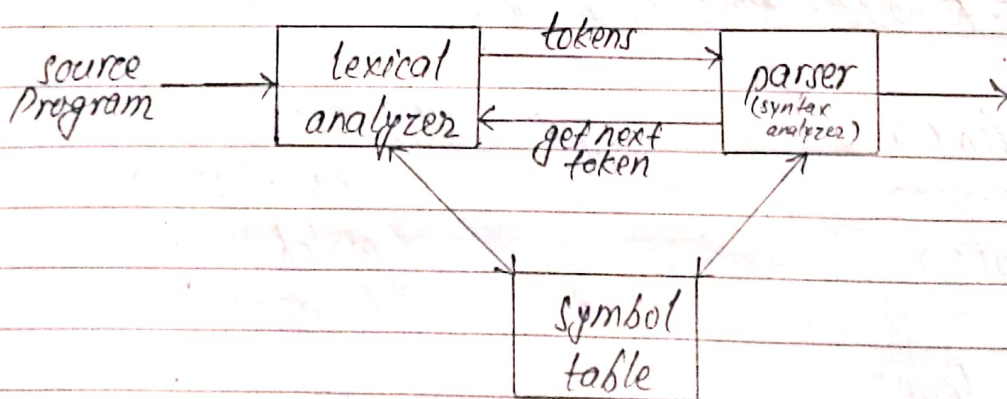 source
program
lexical
analyzer
tokens
get next
token
parser
(syntax
analyzer)
symbol
table